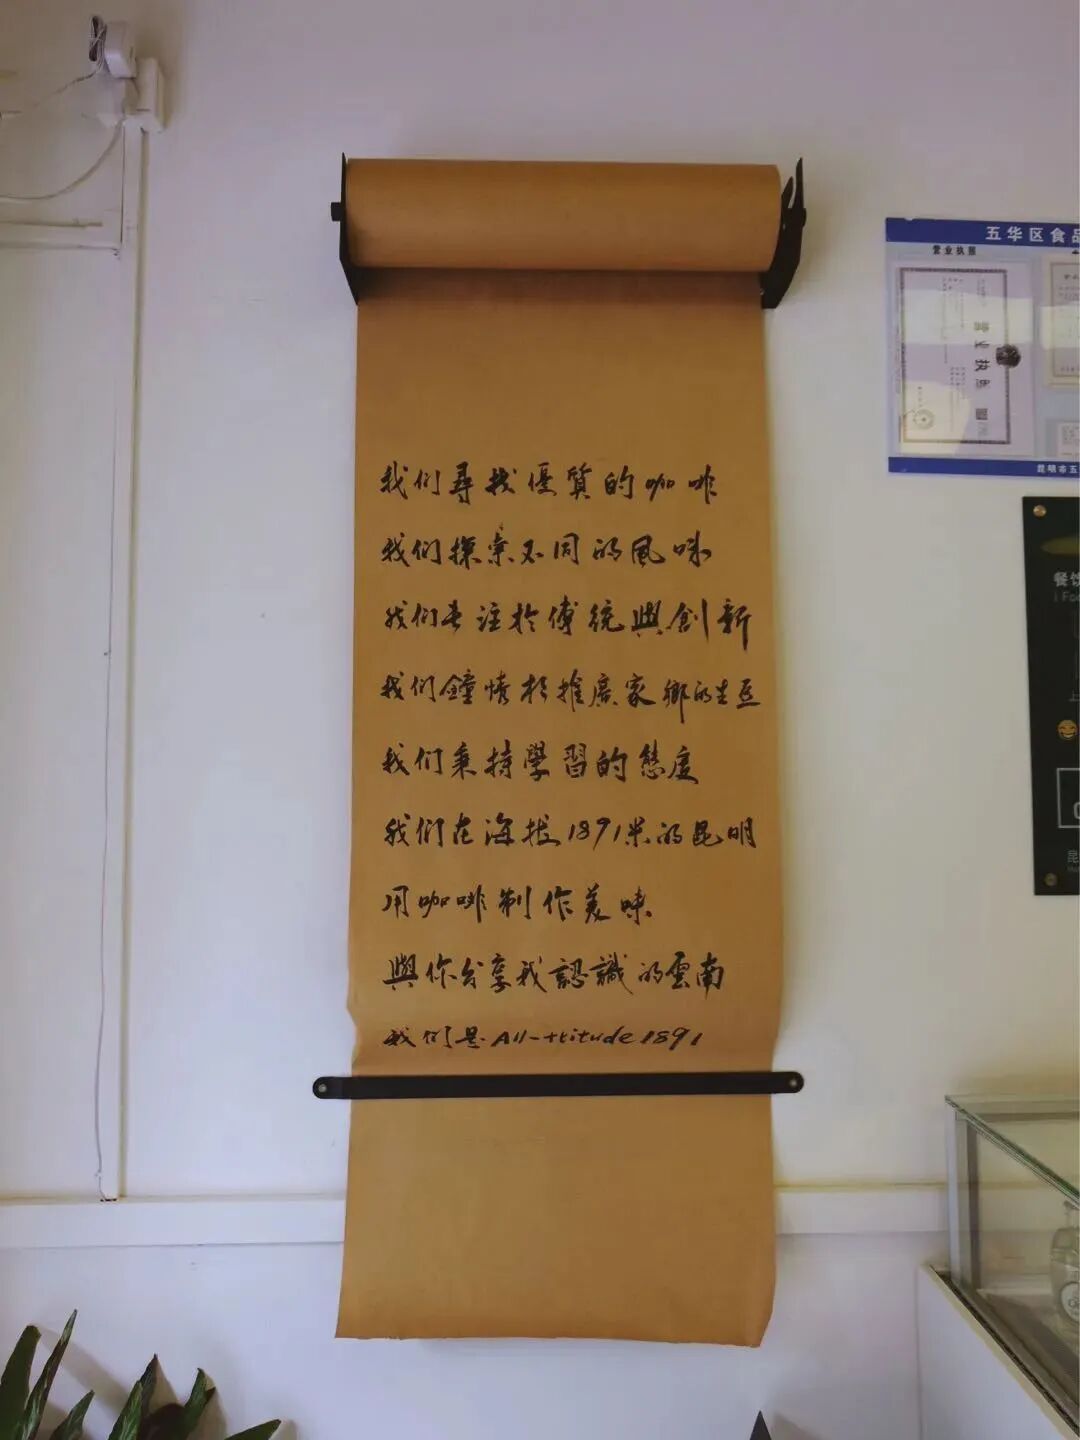 我们尋找優質的咖啡
我们探索不同的風味
我们专注於傳統與創新
我们鐘情於推廣家鄉的生豆
我们秉持學習的態度
我们在海拔1891米的昆明
用咖啡制作美味
與你分享我認識的雲南
我们是All-ttitude1891
五华区食品
营业执照
营业执照
昆明市五
餐饮
i Foo
昆